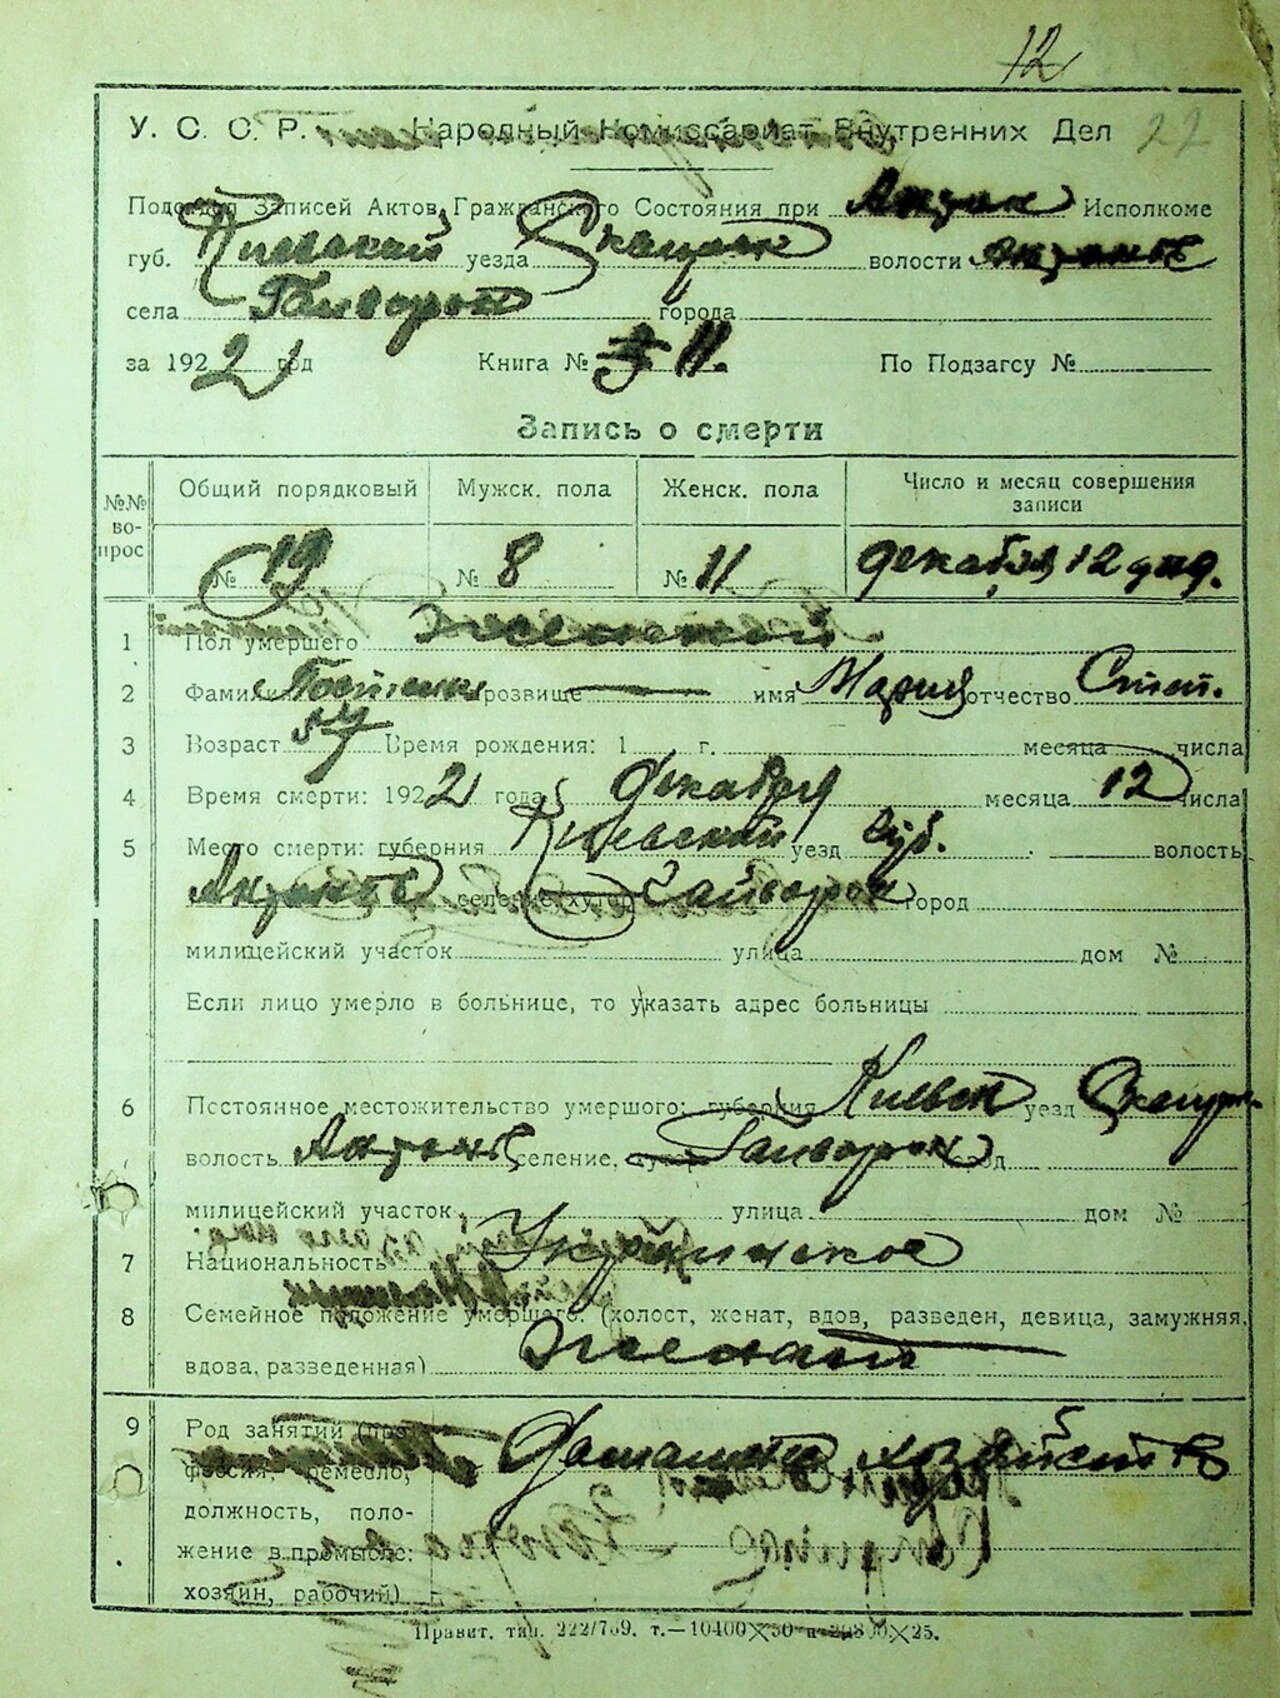 12
У. С. С. Р. Народный Комиссариат Внутренних Дел 22
Подотдел Записей Актов Гражданского Состояния при Исполкоме
губ. Киевской уезда Сквирск волости
села Гайворон города
за 1922 год Книга № 11. По Подзагсу №
Запись о смерти
№№ вопрос Общий порядковый Мужск. пола Женск. пола Число и месяц совершения записи
№ 19 № 8 № 11 декабря 12 дня.
1 Пол умершего Женской
2 Фамилия прозвище — имя Мария отчество Степ.
3 Возраст 57 Время рождения: 1 г. месяца числа
4 Время смерти: 1922 года декабря месяца 12 числа
5 Место смерти: губерния Киевской уезд волость
селение (хутор Гайворон город
милицейский участок улица дом №
Если лицо умерло в больнице, то указать адрес больницы
6 Постоянное местожительство умершого: губерния Киевск уезд Сквирк.
волость селение, хутор Гайворон город
милицейский участок улица дом №
7 Национальность Украинское
8 Семейное положение умершего: (холост, женат, вдов, разведен, девица, замужняя,
вдова, разведенная) Женат
9 Род занятий (про-
фессия, ремесло, Домашнее хозяйство
должность, поло-
жение в промысле:
хозяин, рабочий)
Правит. тип. 222/769. т.—10400×50 п 20800×25.